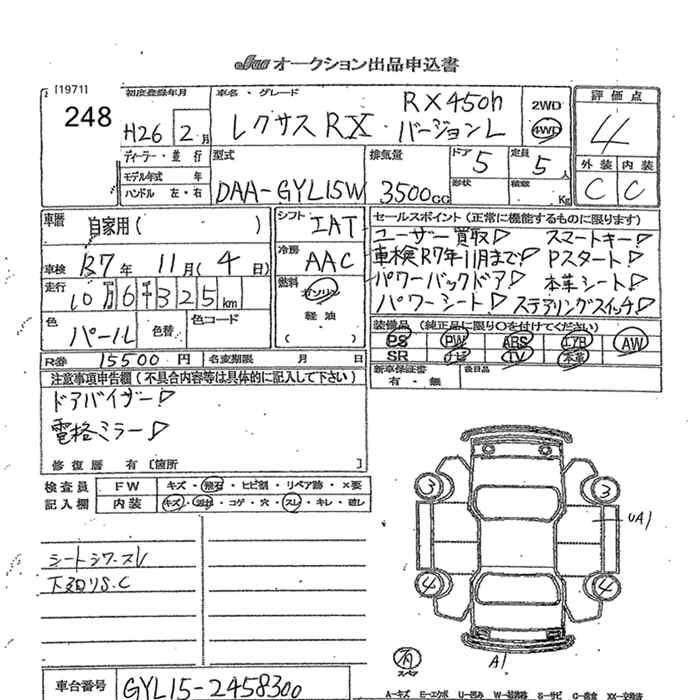 JAA オークション出品申込書
[1971]
248
初度登録年月
H26 2月
車名・グレード
RX450h
レクサス RX・バージョンL
2WD
4WD
評価点
4
外装 内装
C C
ディーラー・並行
モデル年式 年
ハンドル 左・右
型式
DAA-GYL15W
排気量
3500CC
ドア 5
形状
定員 5人
積載 Kg
車歴 自家用( )
車検 R7年 11月(4日)
走行
10万6千325km
色
パール
色替
色コード
R券 15500円 名変期限 月 日
シフト IAT
冷房 AAC
燃料 ガソリン
軽油
( )
セールスポイント(正常に機能するものに限ります)
ユーザー買取▷ スマートキー▷
車検R7年11月まで▷ Pスタート▷
パワーバックドア▷ 本革シート▷
パワーシート▷ ステアリングスイッチ▷
装備品(純正品に限り○を付けてください)
PS PW ABS エアB AW
SR ナビ TV 本革
新車保証書 後日品
有・無
注意事項申告欄(不具合内容等は具体的に記入して下さい)
ドアバイザー▷
電格ミラー▷
修復歴 有 〔箇所
検査員 FW キズ・飛石・ヒビ割・リペア跡・×要
記入欄 内装 キズ・汚れ・コゲ・穴・スレ・キレ・破レ
シートシワ.スレ
下廻りS.C
3 3
UA1
4 4
有
スペア
A1
車台番号 GYL15-2458300
A-キズ E-エクボ U-凹み W-補修跡 S-サビ C-腐食 XX-交換済